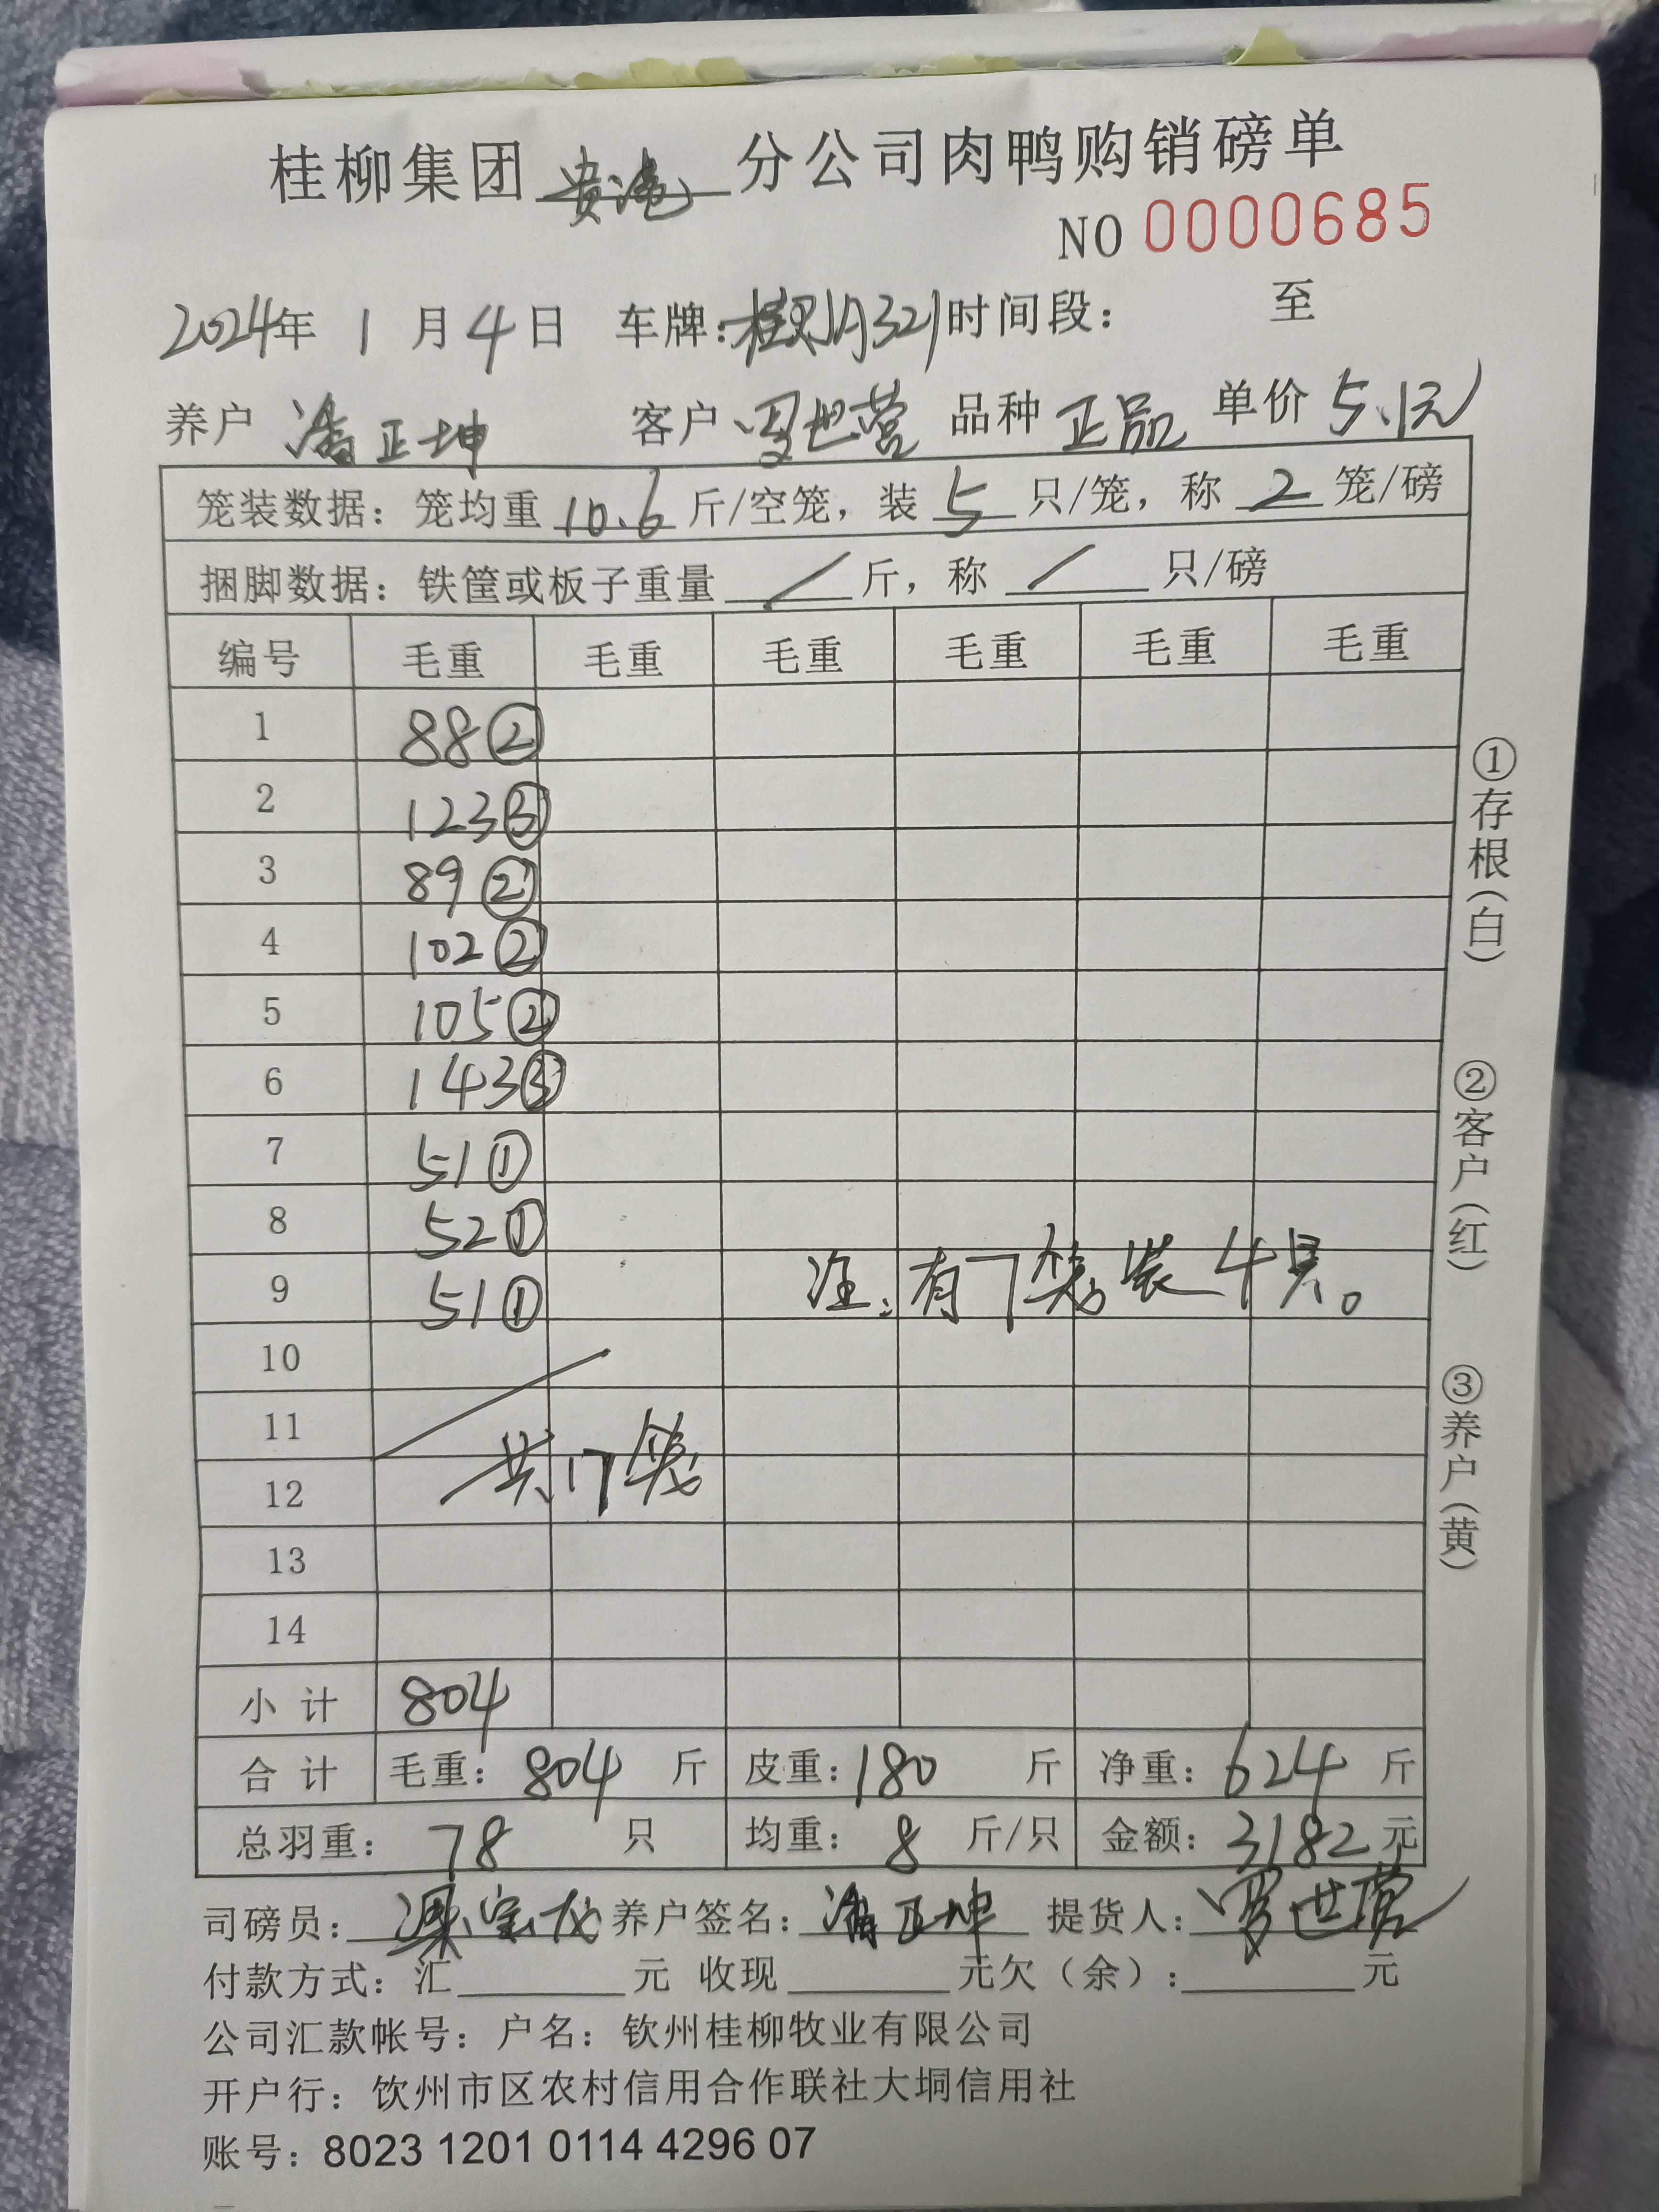 桂柳集团 贵港 分公司肉鸭购销磅单
NO 0000685
2024年 1 月 4 日 车牌： 时间段： 至
养户 潘正坤 客户 罗世营 品种 正品 单价 5.1元
笼装数据：笼均重 10.6 斤/空笼，装 5 只/笼，称 2 笼/磅
捆脚数据：铁筐或板子重量 / 斤，称 / 只/磅
编号 毛重 毛重 毛重 毛重 毛重 毛重
1 88②
2 123③
3 89②
4 102②
5 105②
6 143③
7 51①
8 52①
9 51①
注：有7笼装4只。
10
11
共17笼
12
13
14
小 计 804
合 计 毛重：804 斤 皮重：180 斤 净重：624 斤
总羽重：78 只 均重：8 斤/只 金额：3182 元
司磅员：梁宝龙 养户签名：潘正坤 提货人：罗世营
付款方式：汇 元 收现 元欠（余）： 元
公司汇款帐号：户名：钦州桂柳牧业有限公司
开户行：钦州市区农村信用合作联社大垌信用社
账号：8023 1201 0114 4296 07
①存根（白）
②客户（红）
③养户（黄）